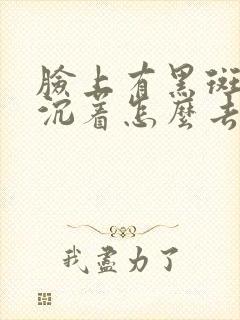 臉上有黑斑
沉著怎麼去
我盡力了